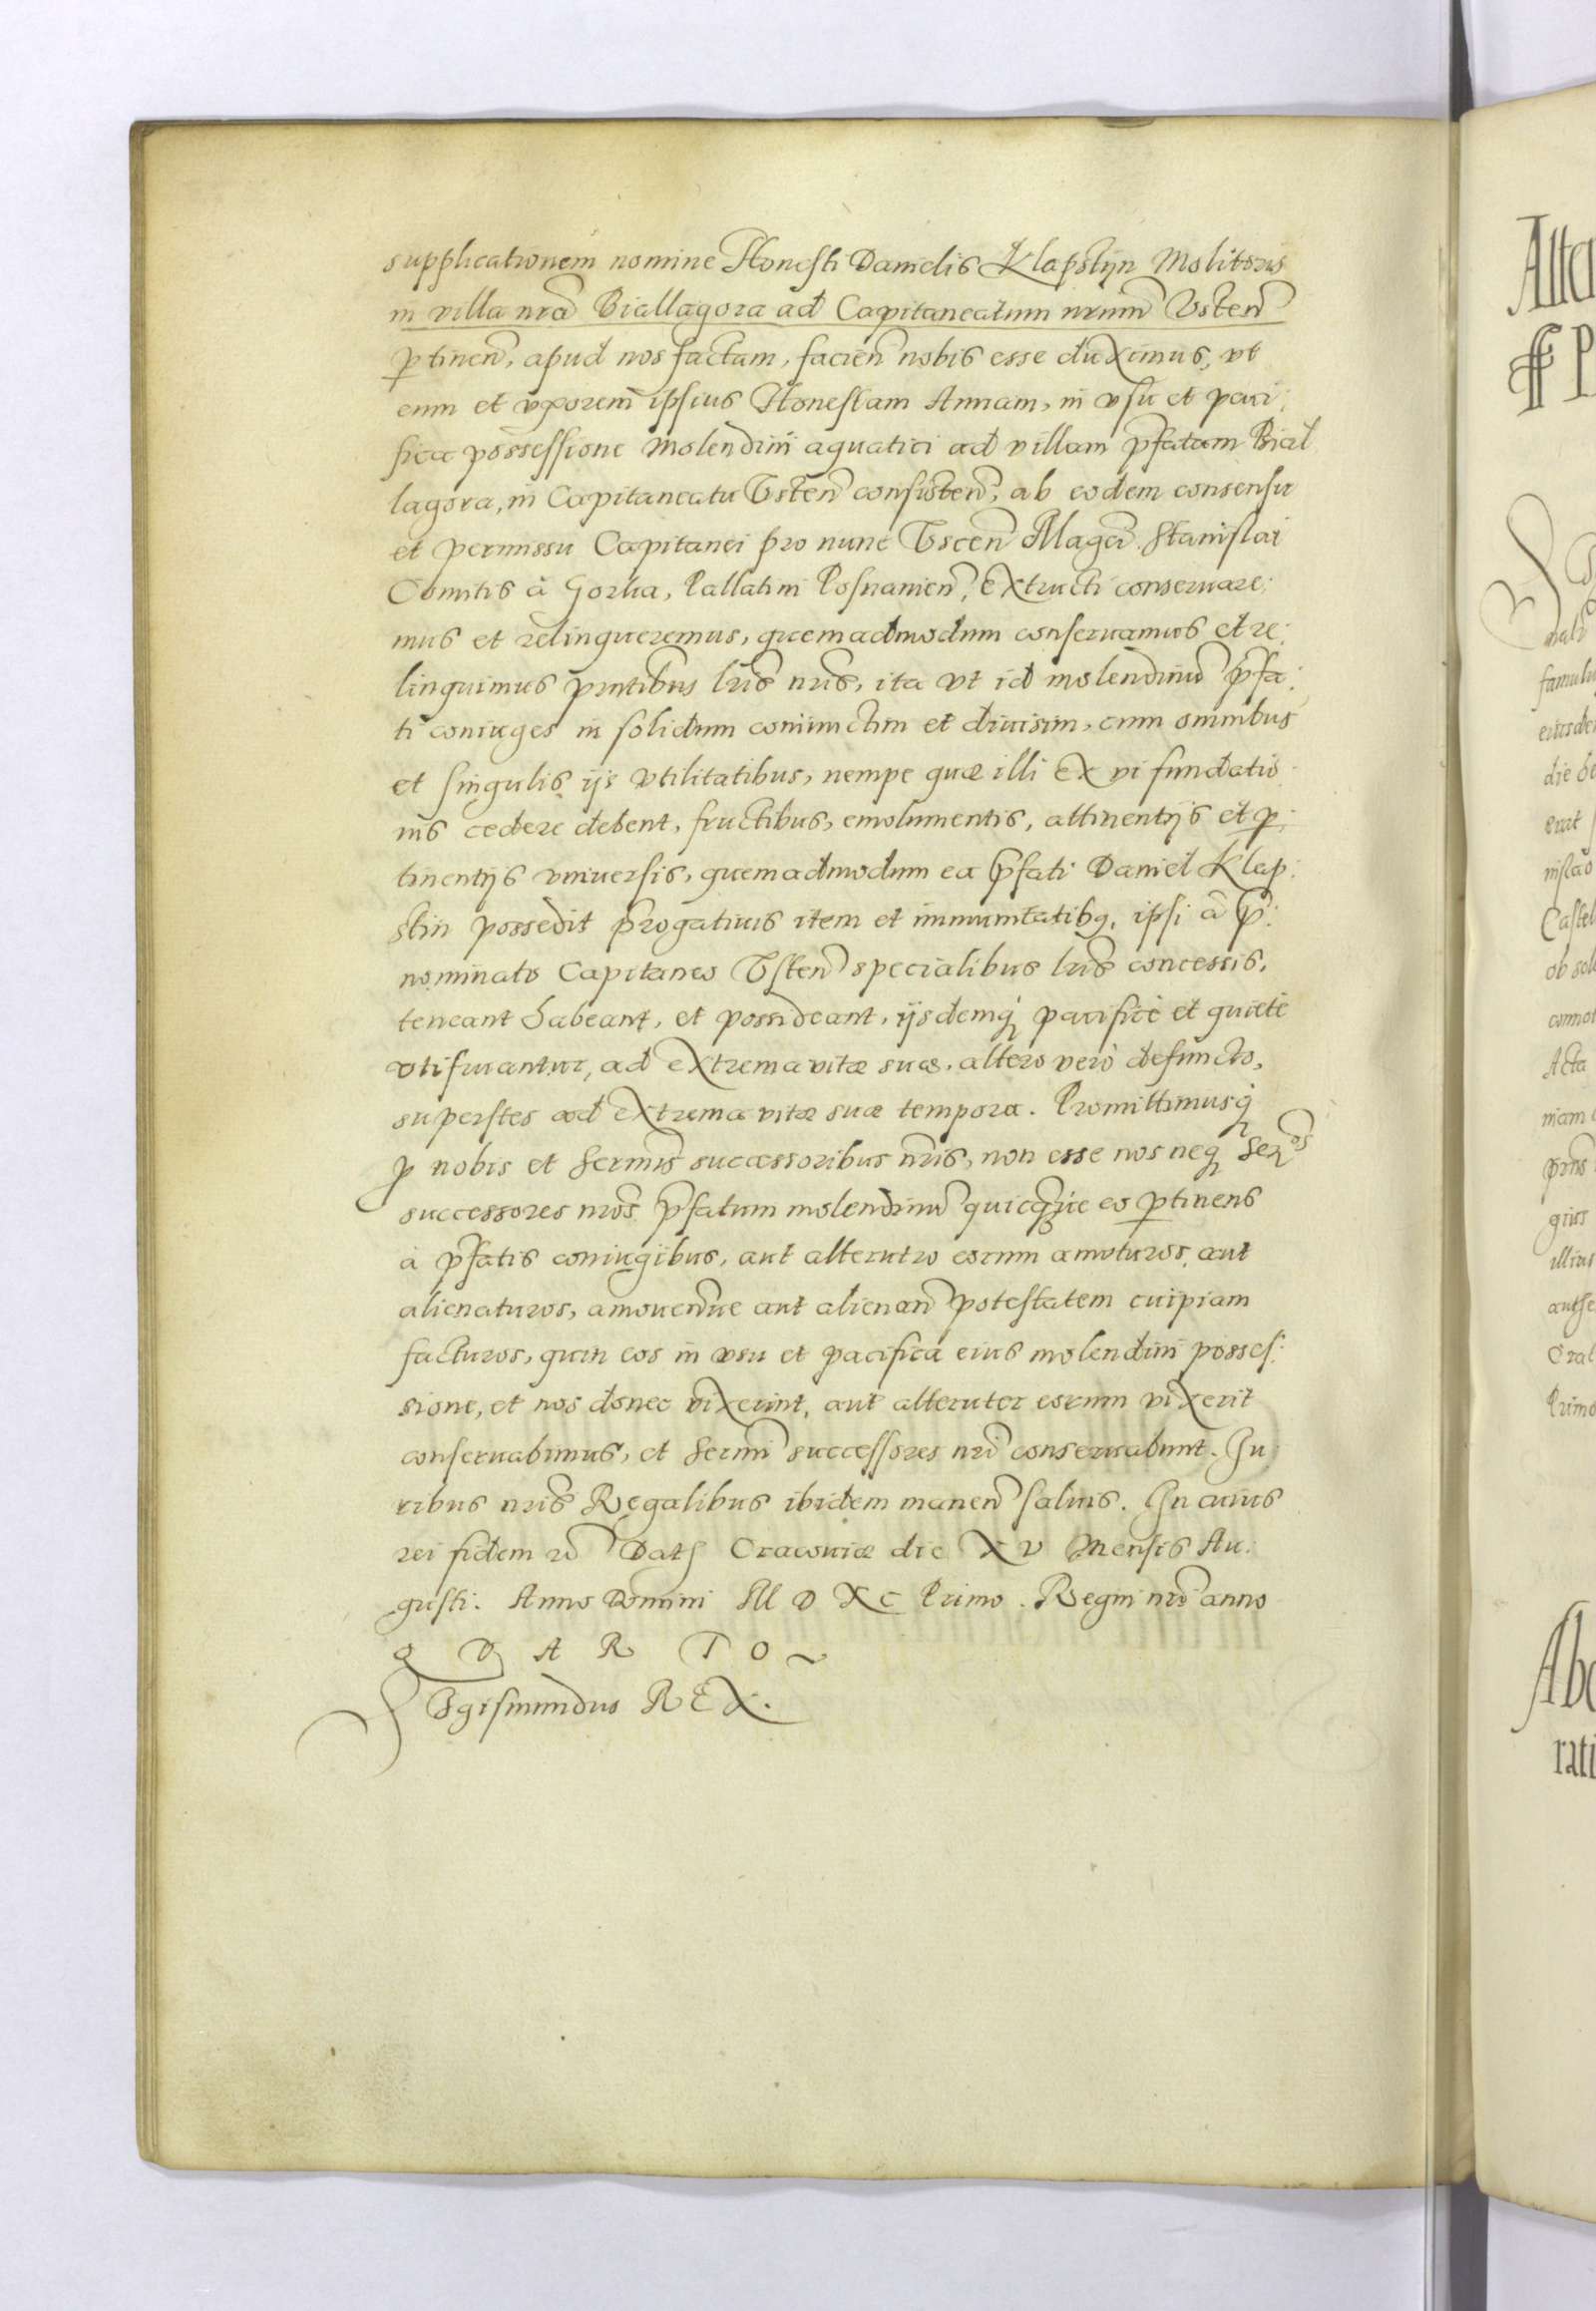 supplicationem nomine Honesti Danielis Klapstÿn Molitoris
in villa nrã Biallagora ad Capitaneatum nrum̃ Usteñ
ꝑtineñ, apud nos factam, facieñ nobis esse duximus, vt
eum et vxorem ipsius Honestam Annam, in vsu et paci:
fica possessione Molendini aquatici ad villam p̃fatam Bial
lagora, in Capitaneatu Usteñ consisteñ, ab eodem consensu
et permissu Capitanei pro nunc Usceñ Magcí Stanislai
Comitis à Gorka, Pallatini Posnanieñ, Extructi conseruare:
mus et relinqueremus, quemadmodum conseruamus et re:
linquimus pñtibus lrĩs nrĩs, ita vt id molendinũ p̃fa:
ti coniuges in solidum coniunctim et diuisim, cum omnibus
et singulis ijs vtilitatibus, nempe quæ illi Ex vi fundatio
nis cedere debent, fructibus, emolumentis, attinentijs et ꝑ:
tinentijs vniuersis, quemadmodum ea p̃fati Daniel Klap:
stin possedit progatiuis item et immunitatibꝫ, ipsi à p̃:
nominato Capitaneo Usteñ specialibus lrĩs concessis,
teneant habeant, et possideant, ijsdemqꝫ pacificè et quietè
vtifruantur, ad extrema vitæ suæ, altero verò defuncto,
superstes ad extrema vitæ suæ tempora. Promittimusqꝫ
ꝓ nobis et Sermĩs successoribus nrĩs, non esse nos neqꝫ Serᵒˢ
successores nrõs p̃fatum molendinũ quicqͣue eo ꝑtinens
à p̃fatis coniugibus, aut alterutro eorum amoturos, aut
alienaturos, amoueñue aut alienañ potestatem cuipiam
facturos, quin eos in vsu et pacifica eius molendini posses:
sione, et nos donec vixerint, aut alteruter eorum vixerit
conseruabimus, et Sermĩ successores nrĩ conseruabunt. Iu
ribus nrĩs Regalibus ibidem maneñ saluis. In cuius
rei fidem Datꝭ Cracouiæ die XV Mensis Au:
gusti. Anno Domini M D XC Primo. Regni nrĩ anno
Q V A R T O
Sigismundus REX.